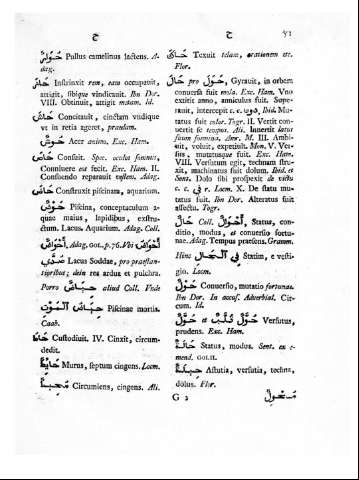 ح ح ٥١
Pullus camelinus lactens. A-
dag.
حاز Instrinxit rem, eam occupavit,
attigit, sibique vindicavit. Ibn Dor.
VIII. Obtinuit, attigit malam. Id.
حاش Concitauit, cinctam vndique
vt in retia ageret, praedam.
حوش Acer animo. Exc. Ham.
حاص Consuit. Spec. oculos suimus,
Conniuere eos fecit. Exc. Ham. II.
Consuendo reparauit vestem. Adag.
حاض Construxit piscinam, aquarium.
حوض Piscina, conceptaculum a-
quae maius, lapidibus, exstru-
ctum. Lacus, Aquarium. Adag. Coll.
أحواض Adag. Got. p. 76. Vbi
Lacus Soddae, pro praestan-
tioribus; dein res ardua et pulchra.
Porro حياض aliud Coll. Vnde
حياض الموت Piscinae mortis.
Caab.
حاط Custodiuit. IV. Cinxit, circum-
dedit.
حائط Murus, septum cingens. Locm.
محيط Circumiens, cingens. Ali.
حاك Texuit telam, orationem etc.
Flor.
حال pro حول, Gyrauit, in orbem
conuersa fuit mola. Exc. Ham. Vno
exstitit anno, anniculus fuit. Supe-
rauit, intercepit c. c. دون, ibid. Mu-
tatus fuit color. Togr. II. Vertit con-
uertit se tempus. Ali. Inuertit latus
suum summa. Amr. M. III. Ambi-
uit, voluit, expetiuit. Mon. V. Ver-
sus, mutatusque fuit. Exc. Ham.
VIII. Versutum egit, technam stru-
xit, machinatus fuit dolum. Ibid. et
Sent. Dolo sibi prospexit de victu
c. c. في r. Locm. X. De statu mu-
tatus fuit. Ibn Dor. Alteratus fuit
affectu. Togr.
حال Coll. أحوال, Status, con-
ditio, modus, et conuersio fortu-
nae. Adag. Tempus praesens. Gramm.
Hinc في الحال Statim, e vesti-
gio. Locm.
حول Conuersio, mutatio fortunae.
Ibn Dor. In accus. Adverbial. Cir-
cum. Id.
حول et حول قلب Versutus,
prudens. Exc. Ham.
حالة Status, modus. Sent. ex e-
mend. Gol. II.
حيلة Astutia, versutia, techna,
dolus. Flor.
G 2